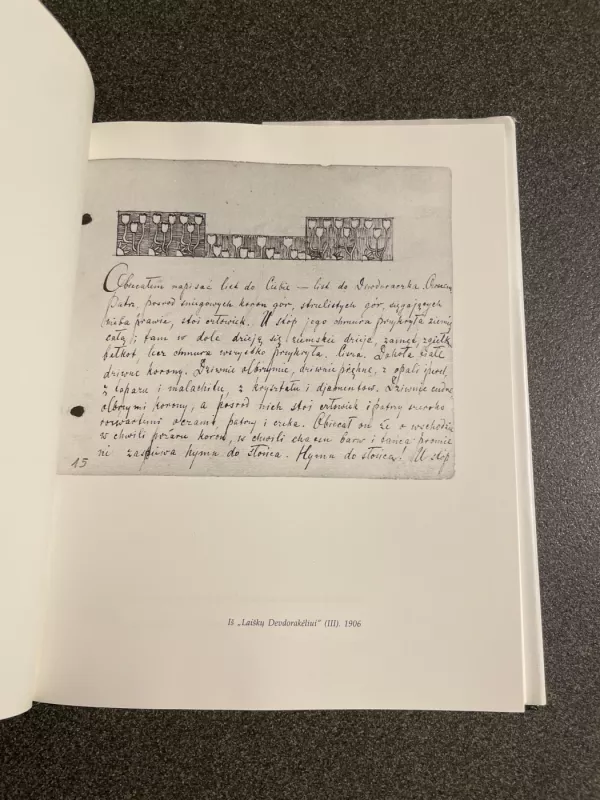 Obiecałem napisać list do Ciebie — list do Dewdoraczka.
Patrz, pośród śniegowych koron gór, strzelistych gór, sięgających
nieba prawie, stoi człowiek. U stóp jego chmura przykryła ziemię
całą i tam w dole dzieją się ziemskie dzieje, zamęt, zgiełk,
lecz chmura wszystko przykryła. Cisza. Dokoła białe
dziwne korony. Dziwnie olbrzymie, dziwnie piękne, z opali i pereł,
z topazu i malachitu, z kryształu i djamentow. Dziwnie cudne
olbrzymi korony, a pośród nich stoi człowiek i patrzy szeroko
rozwartemi oczami, patrzy i czeka. Obiecał on że o wschodzie
w chwili pożaru koron, w chwili chaosu barw i tańca promie
ni zaśpiewa hymn do słońca. Hymn do słońca! U stóp
15
Iš „Laiškų Devdorakėliui“ (III). 1906